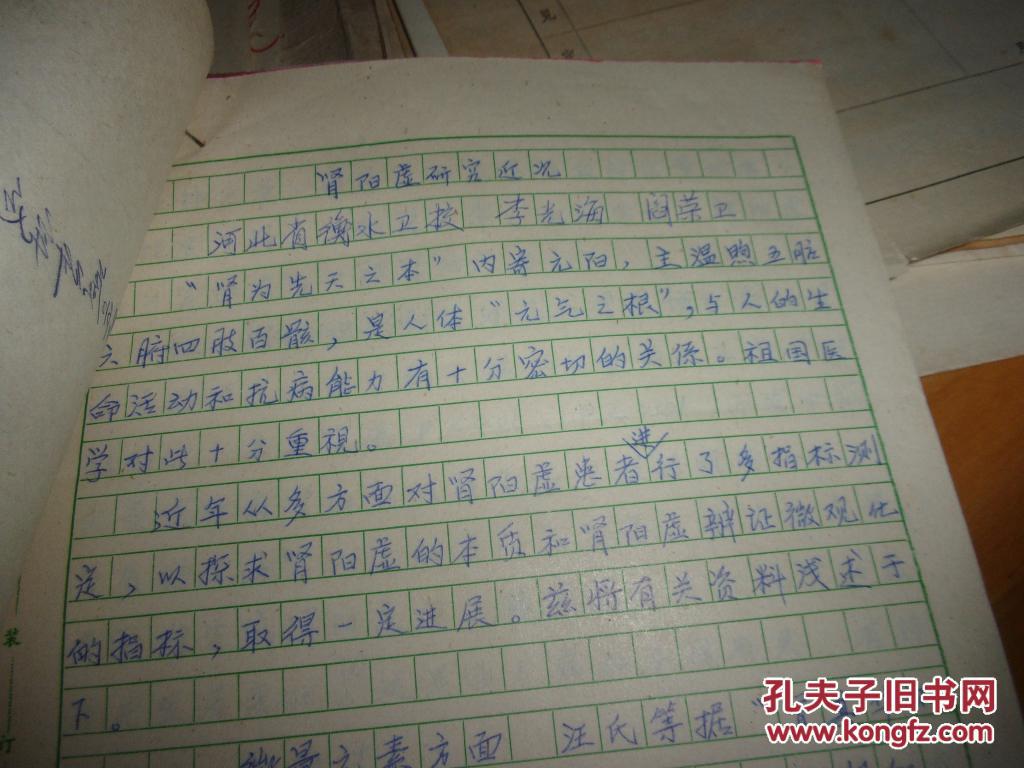 肾阳虚研究近况
河北省衡水卫校 李光海 阎荣卫
“肾为先天之本”内寄元阳,主温煦五脏
六腑四肢百骸,是人体“元气之根”,与人的生
命活动和抗病能力有十分密切的关係。祖国医
学对此十分重視。
近年从多方面对肾阳虚患者进行了多指标测
定,以探求肾阳虚的本质和肾阳虚辨证微观化
的指标,取得一定进展。兹将有关资料浅述于
下。
微量元素方面 汪氏等据“
装
订
孔夫子旧书网
www.kongfz.com